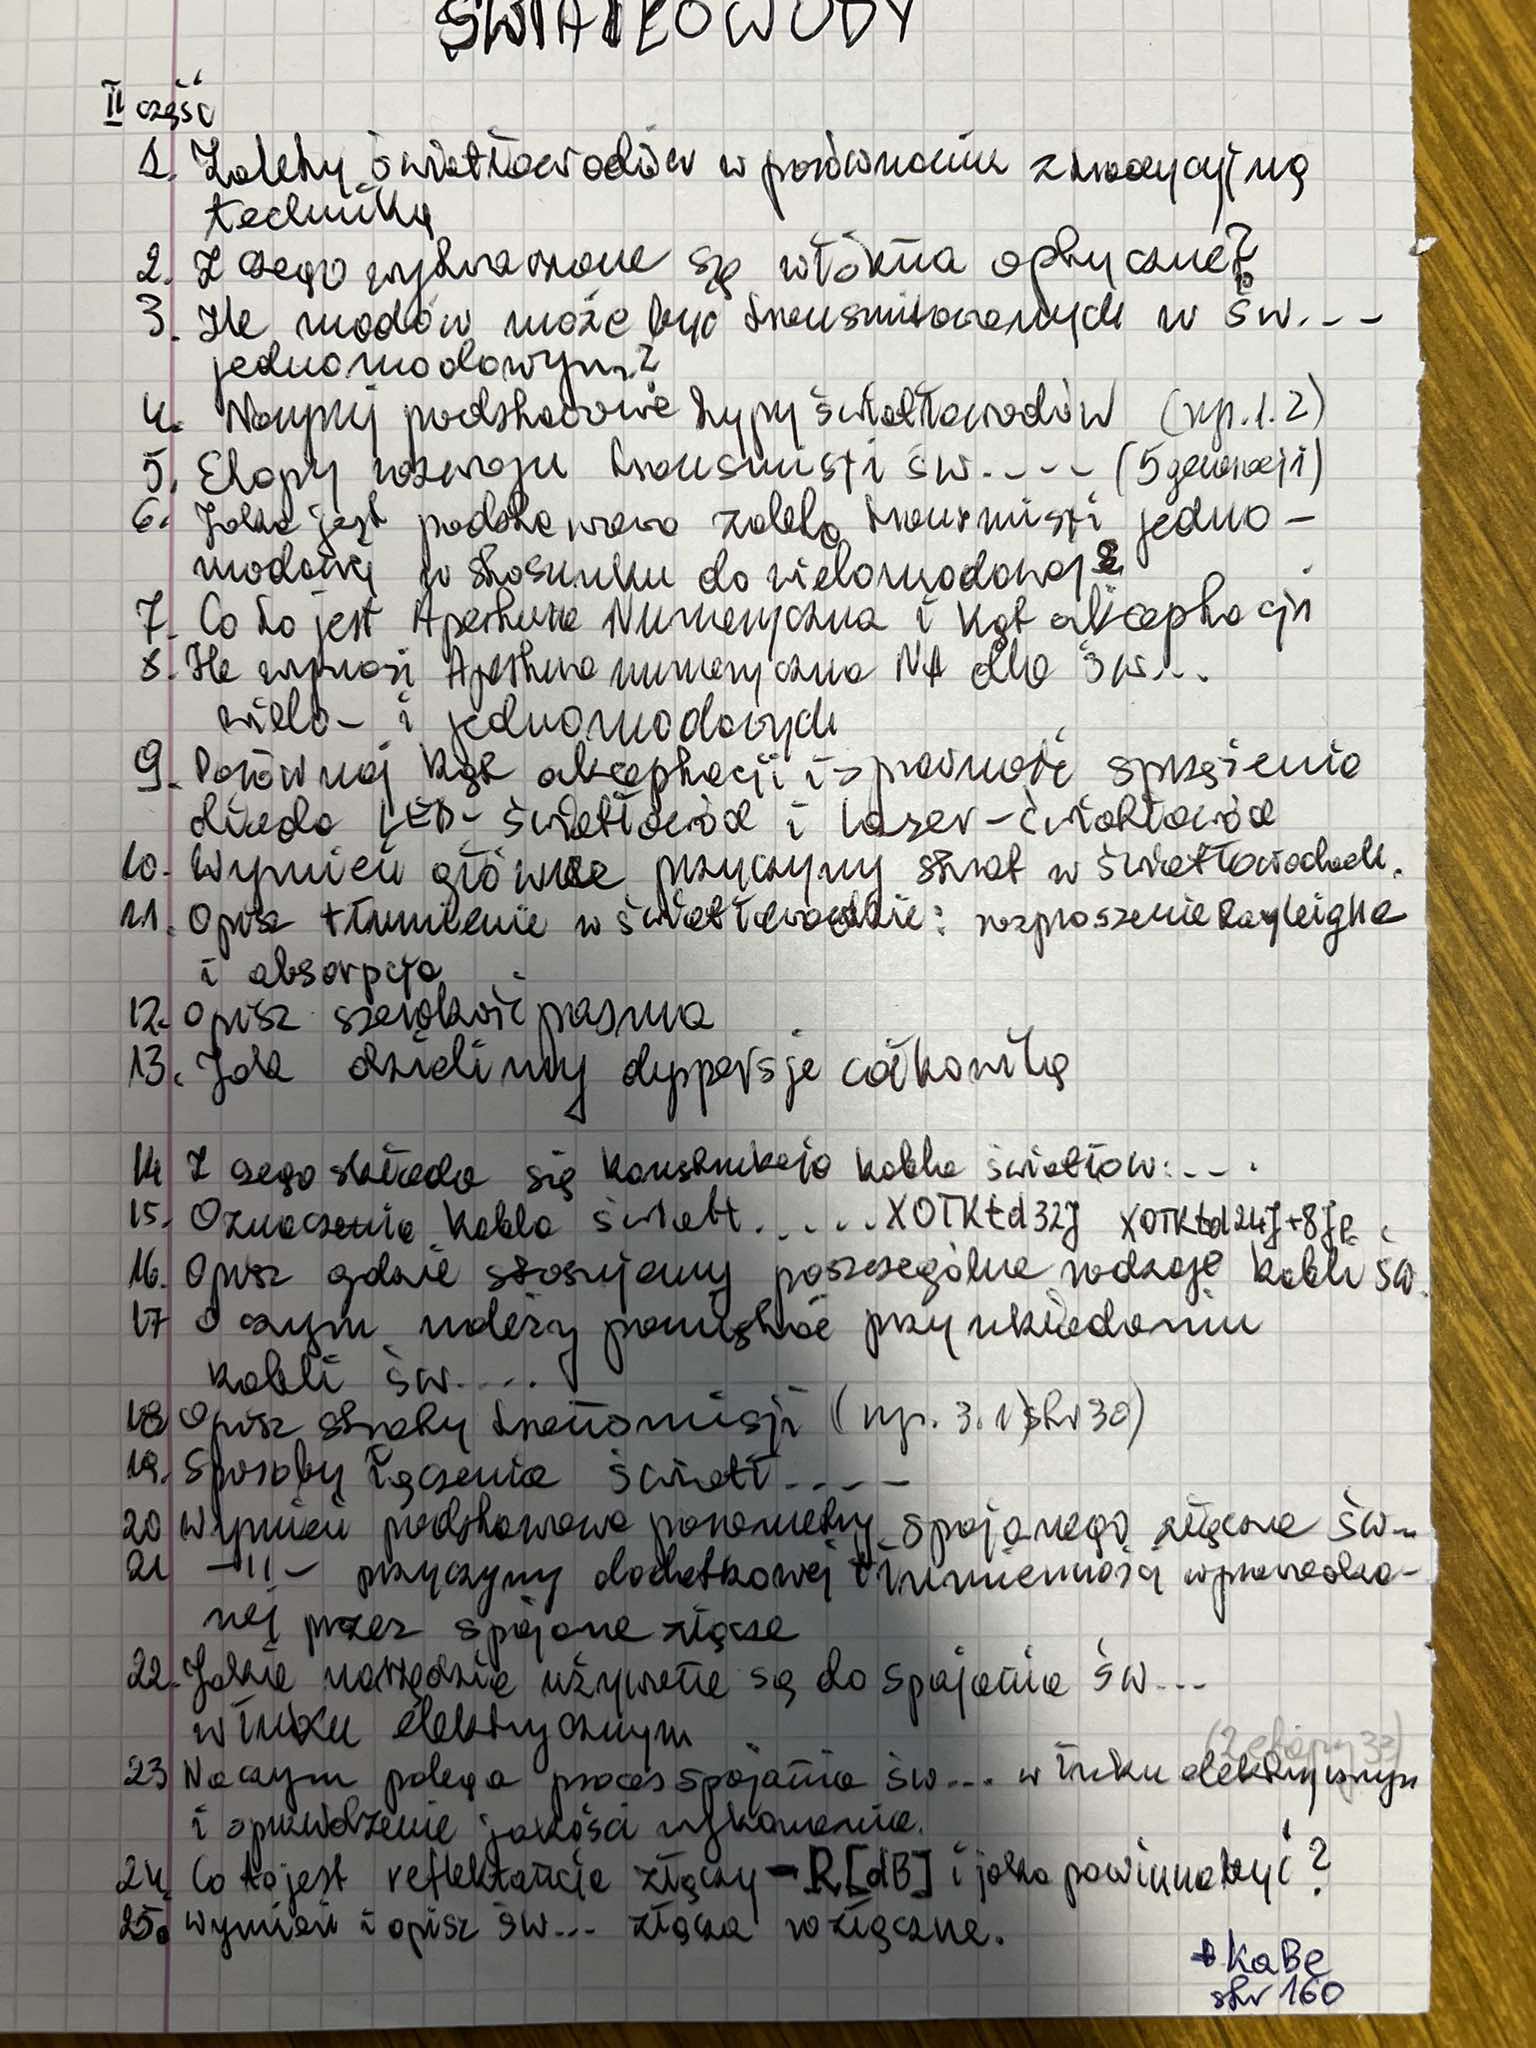 ŚWIATŁOWODY
II część
1. Zalety światłowodów w porównaniu z tradycyjną
techniką
2. Z czego wytwarzane są włókna optyczne?
3. Ile modów może być transmitowanych w św...
jednomodowym?
4. podstawowe typy światłowodów (np. 1.2)
5. Etapy rozwoju transmisji św..... (5 generacji)
6. Jaka jest podstawowa zaleta transmisji jedno-
modowej w stosunku do wielomodowej?
7. Co to jest Apertura Numeryczna i kąt akceptacji
8. Ile wynosi Apertura numeryczna NA dla św...
wielo- i jednomodowych
9. Porównaj kąt akceptacji i sprawność sprzężenia
dioda LED- światłowód i laser-światłowód
10. Wymień główne przyczyny strat w światłowodach.
11. Opisz tłumienie w światłowodzie: rozproszenie Rayleigha
i absorpcja
12. Opisz szerokość pasma
13. Jak dzielimy dyspersje całkowitą
14. Z czego składa się konstrukcja kabla światłow....
15. Oznaczenia kabla światł..... XOTKtd32J XOTKtd24J+8Jp.
16. Opisz gdzie stosujemy poszczególne rodzaje kabli św.
17 O czym należy pamiętać przy układaniu
kabli św.....
18 Opisz straty transmisji (np. 3.1)str 30)
19. Sposoby łączenia światł.....
20 Wymień podstawowe parametry spajanego złącza św...
21 -11- przyczyny dodatkowej tłumienności wprowadzo-
nej przez spajane złącze
22. Jakie narzędzia używane są do spajania św...
w łuku elektrycznym
(2 etapy 33)
23 Na czym polega proces spajania św... w łuku elektrycznym
i sprawdzenie jakości wykonania.
24. Co to jest reflektancja złączy - R[dB] i jaka powinna być?
25. wymień i opisz św... złącza rozłączne.
+ KaBe
str 160